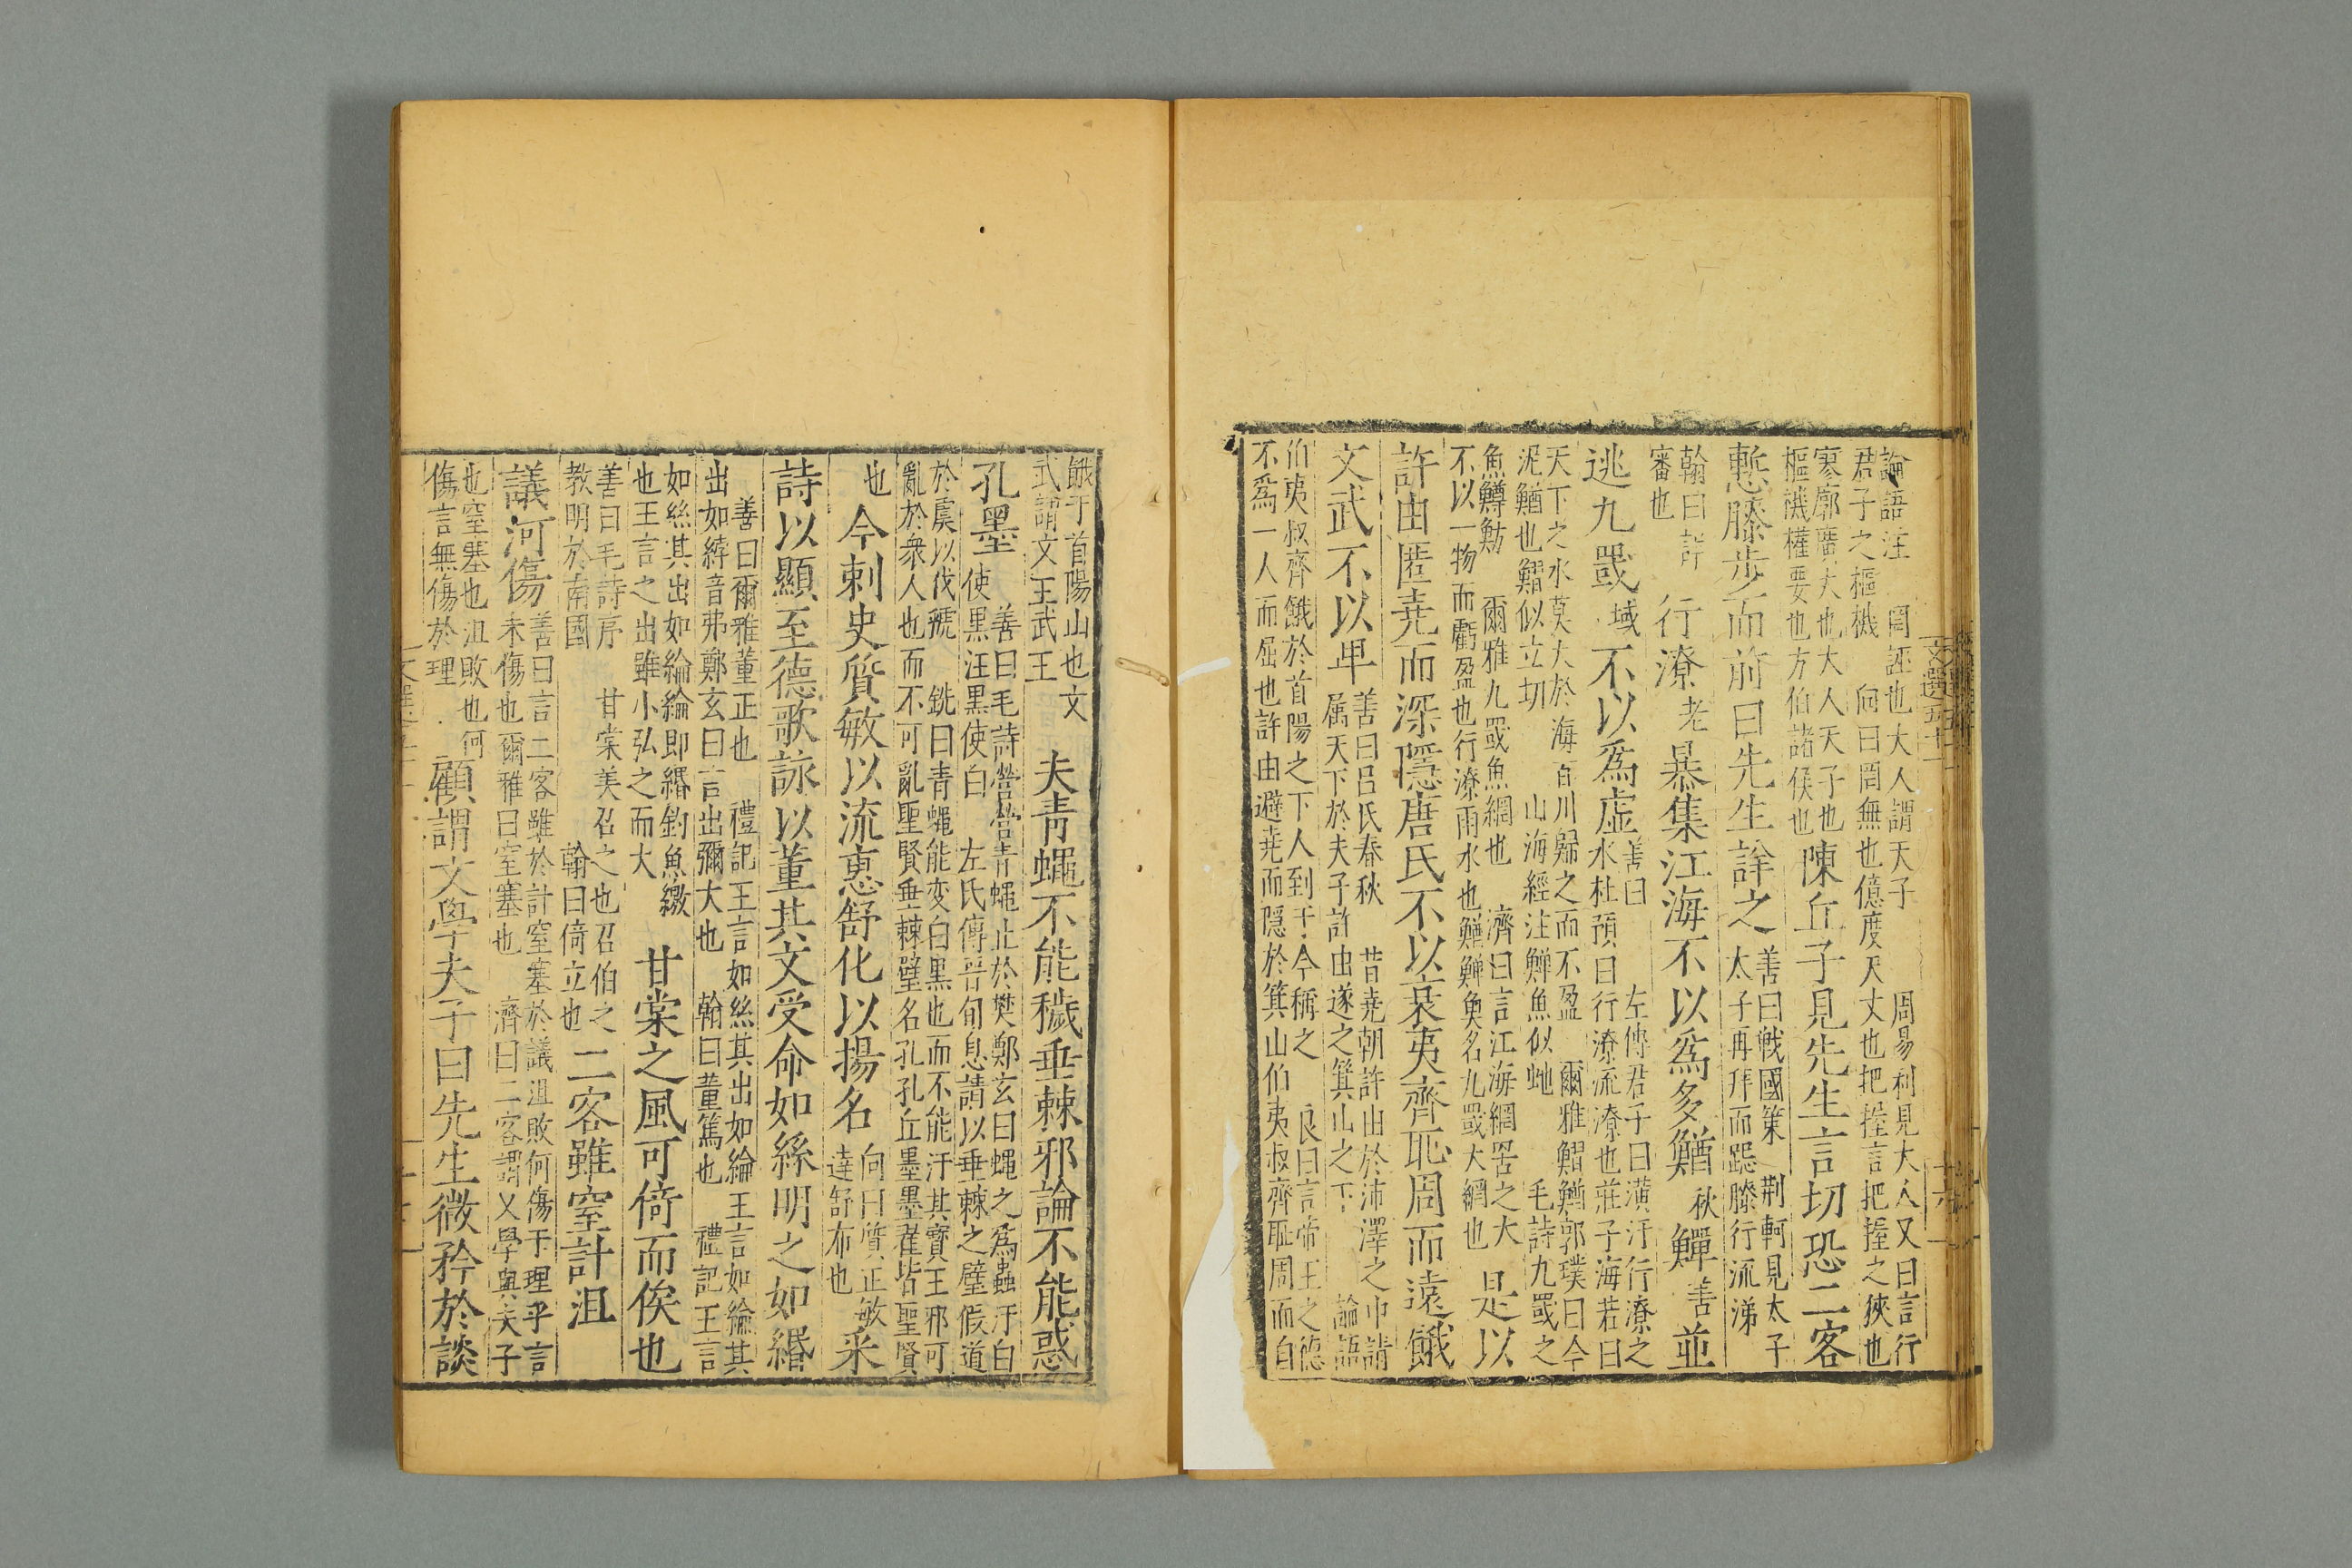 論語注　罔誣也大人謂天子　周易利見大人又曰言行
君子之樞機　向曰罔無也億度尺丈也把握言把握之狹也
寥廓廣大也大人天子也
樞機權要也方伯諸侯也
陳丘子見先生言切恐二客
慙膝步而前曰先生詳之
善曰戰國策　荆軻見太子
太子再拜而跽膝行流涕
翰曰詳
審也
行潦老暴集江海不以爲多鰌秋鱓善並
逃九罭域不以爲虛
善曰　左傳君子曰潢汙行潦之
水杜預曰行潦流潦也莊子海若曰
天下之水莫大於海百川歸之而不盈　爾雅鰼鰌郭璞曰今
泥鰌也鰼似立切　山海經注鱓魚似虵　毛詩九罭之
魚鱒魴　爾雅九罭魚網也　濟曰言江海網罟之大
不以一物而虧盈也行潦雨水也鰌鱓魚名九罭大網也
是以
許由匿堯而深隱唐氏不以衰夷齊恥周而遠餓
文武不以卑
善曰吕氏春秋　昔堯朝許由於沛澤之中請
属天下於夫子許由遂之箕山之下　論語
伯夷叔齊餓於首陽之下人到于今稱之　良曰言帝王之德
不爲一人而屈也許由避堯而隱於箕山伯夷叔齊耻周而自
餓于首陽山也文
武謂文王武王
夫青蠅不能穢垂棘邪論不能惑
孔墨
善曰毛詩營營青蠅止於樊鄭玄曰蠅之爲蟲汙白
使黑汪黑使白　左氏傳晉荀息請以垂棘之璧假道
於虞以伐虢　銑曰青蠅能变白黒也而不能汙其寶王邪可
亂於衆人也而不可亂聖賢垂棘璧名孔孔丘墨墨翟皆聖賢
也
今刺史質敏以流惠舒化以揚名
向曰質正敏
達舒布也
采
詩以顯至德歌詠以董其文受命如絲明之如緡
善曰爾雅董正也　禮記王言如絲其出如綸王言如綸其
出如綍音弗鄭玄曰言出彌大也　翰曰董篤也　禮記王言
如絲其出如綸綸即緡釣魚繳
也王言之出雖小弘之而大
甘棠之風可倚而俟也
善曰毛詩序　甘棠美召之也召伯之
教明於南國　翰曰倚立也
二客雖窒計沮
議何傷
善曰言二客雖於計窒塞於議沮敗何傷于理乎言
未傷也爾雅曰窒塞也　濟曰二客謂文學與夫子
也窒塞也沮敗也何
傷言無傷於理
顧謂文學夫子曰先生微矜於談